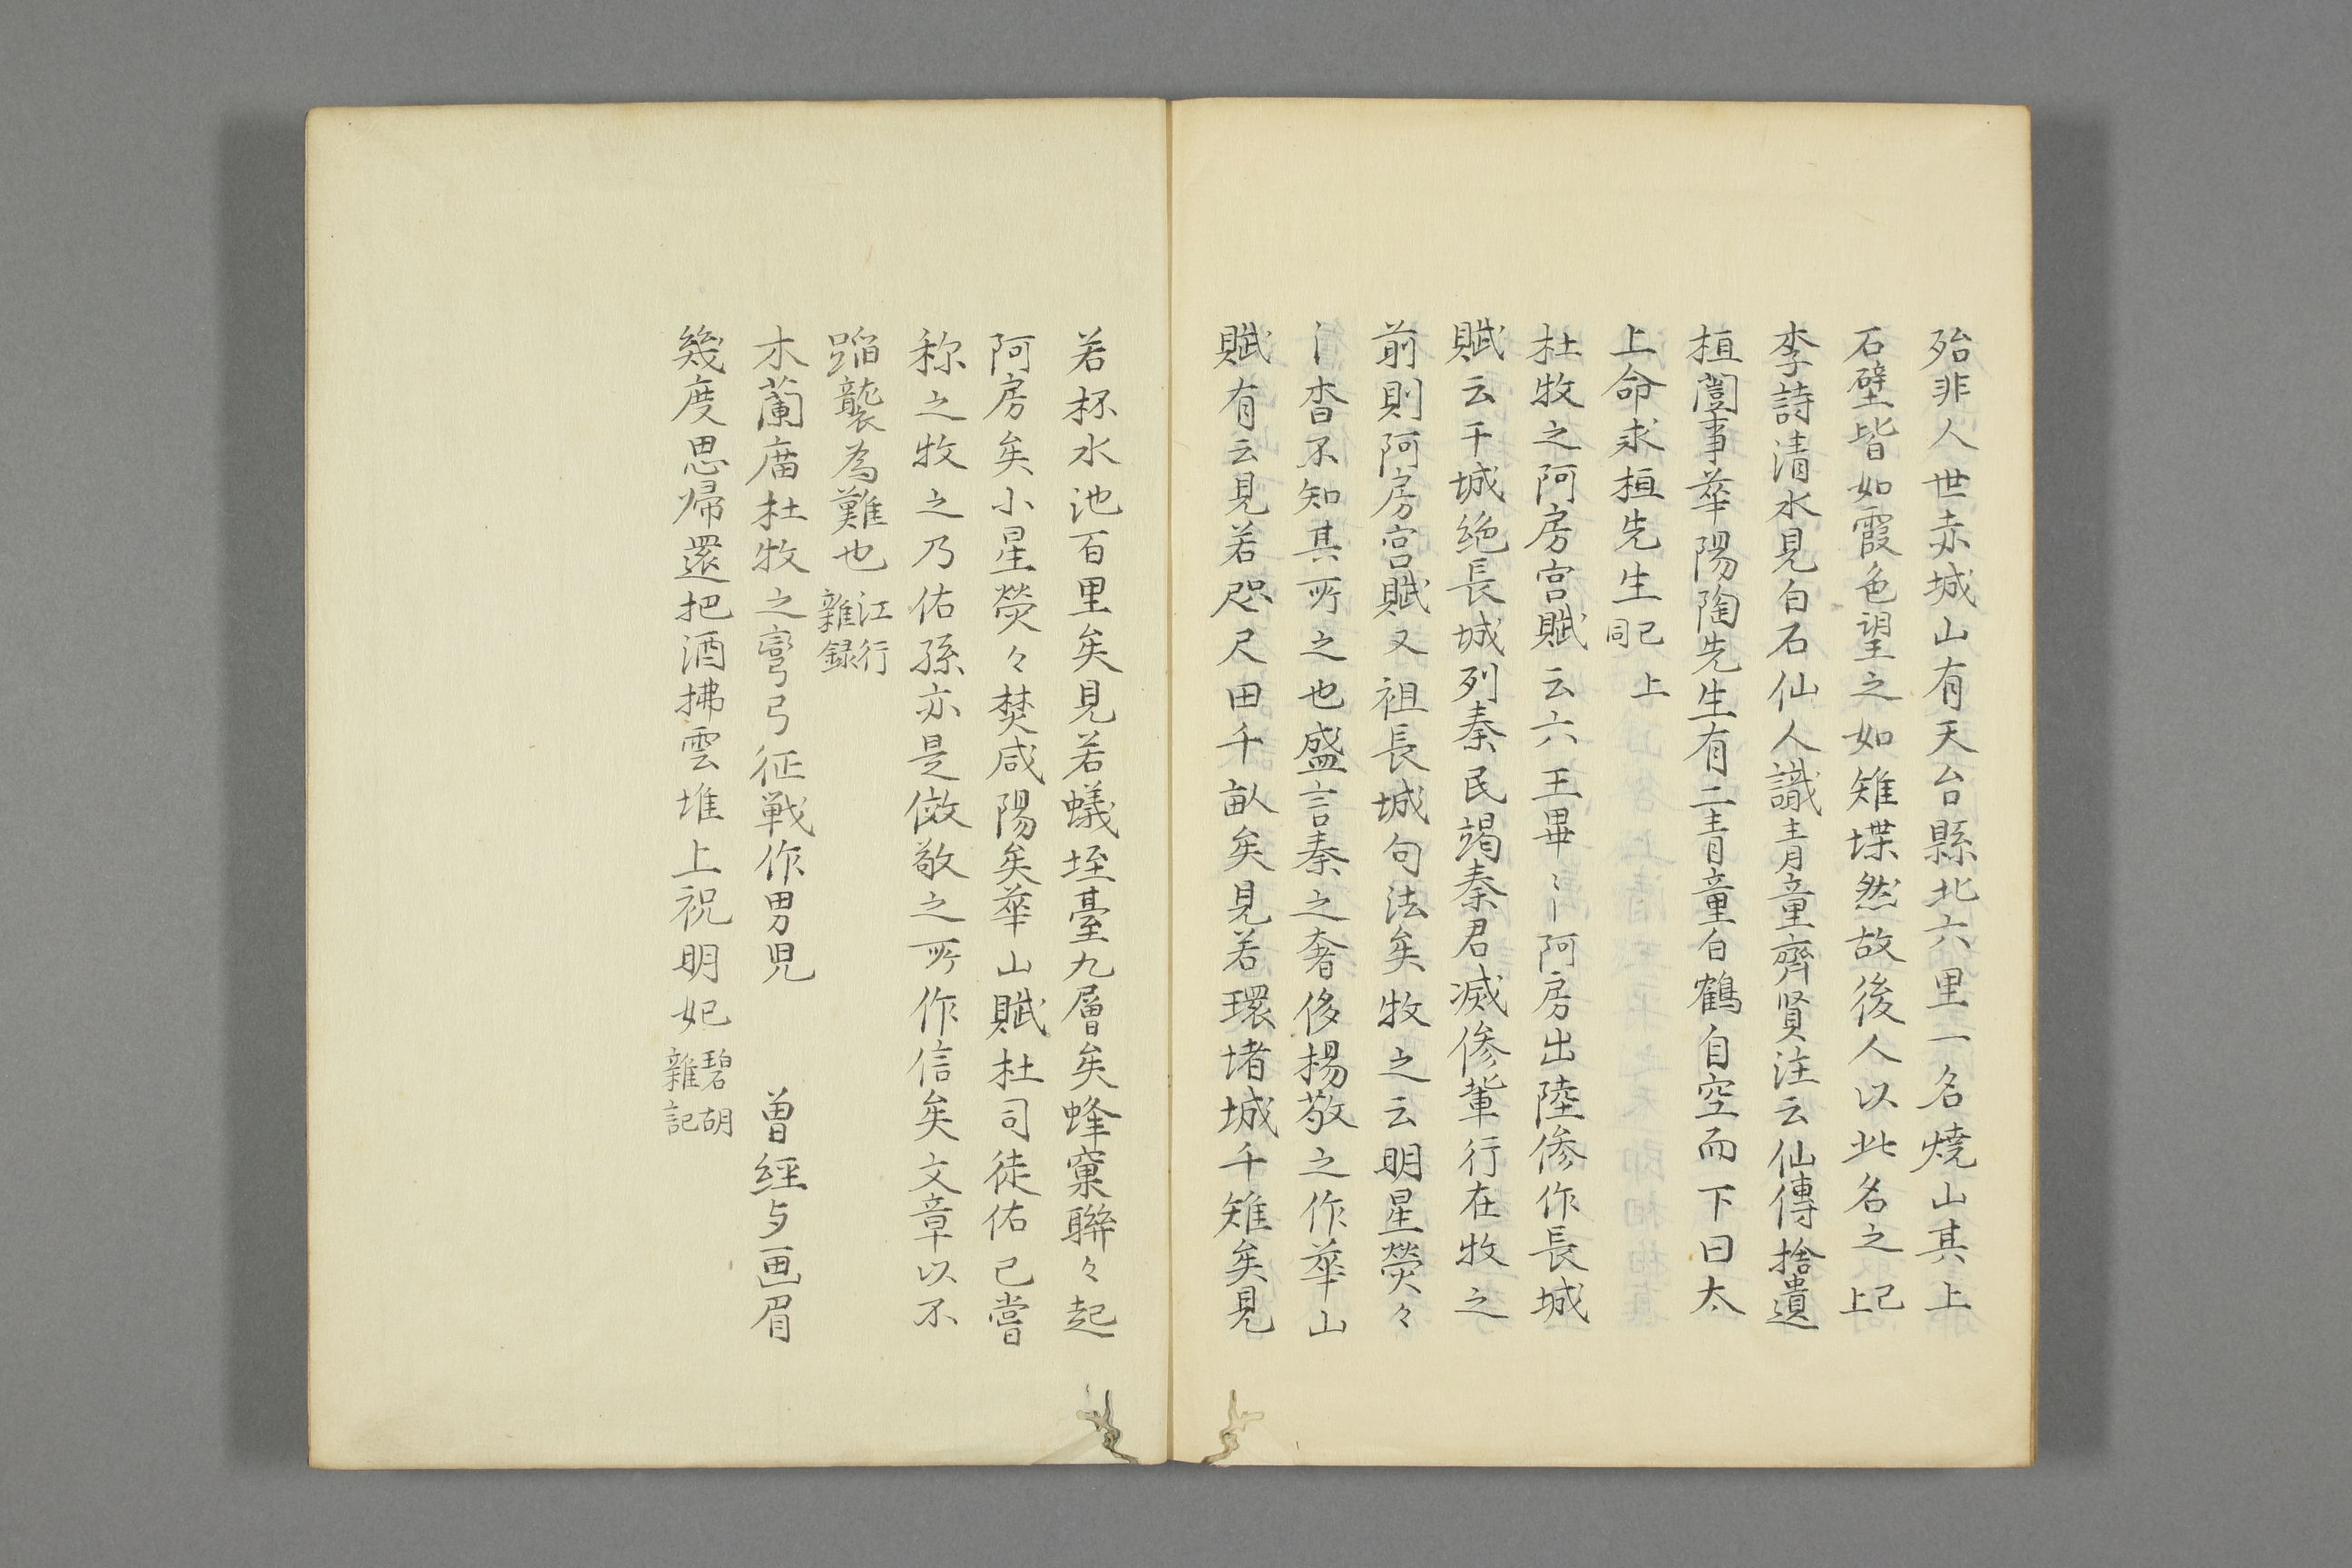 殆非人世赤城山有天台縣北六里一名燒山其上
石壁皆如霞色望之如雉堞然故後人以此名之已上
李詩清水見白石仙人識青童齊賢注云仙傳捨遺
桓闓事華陽陶先生有二青童白鶴自空而下曰太
上命求桓先生已上同
杜牧之阿房宮賦云六王畢〻｜阿房出陸傪作長城
賦云千城絶長城列秦民竭秦君滅傪輩行在牧之
前則阿房宮賦又祖長城句法矣牧之云明星熒々
｜杳不知其所之也盛言秦之奢侈楊敬之作華山
賦有云見若咫尺田千畝矣見若環堵城千雉矣見
若杯水池百里矣見若蟻垤臺九層矣蜂窠聯々起
阿房矣小星熒々焚咸陽矣華山賦杜司徒佑已嘗
称之牧之乃佑孫亦是倣敬之所作信矣文章以不
蹈襲為難也江行雜録
木蘭庿杜牧之彎弓征戦作男児　曽經与画眉
幾度思帰還把酒拂雲堆上祝明妃碧胡雜記